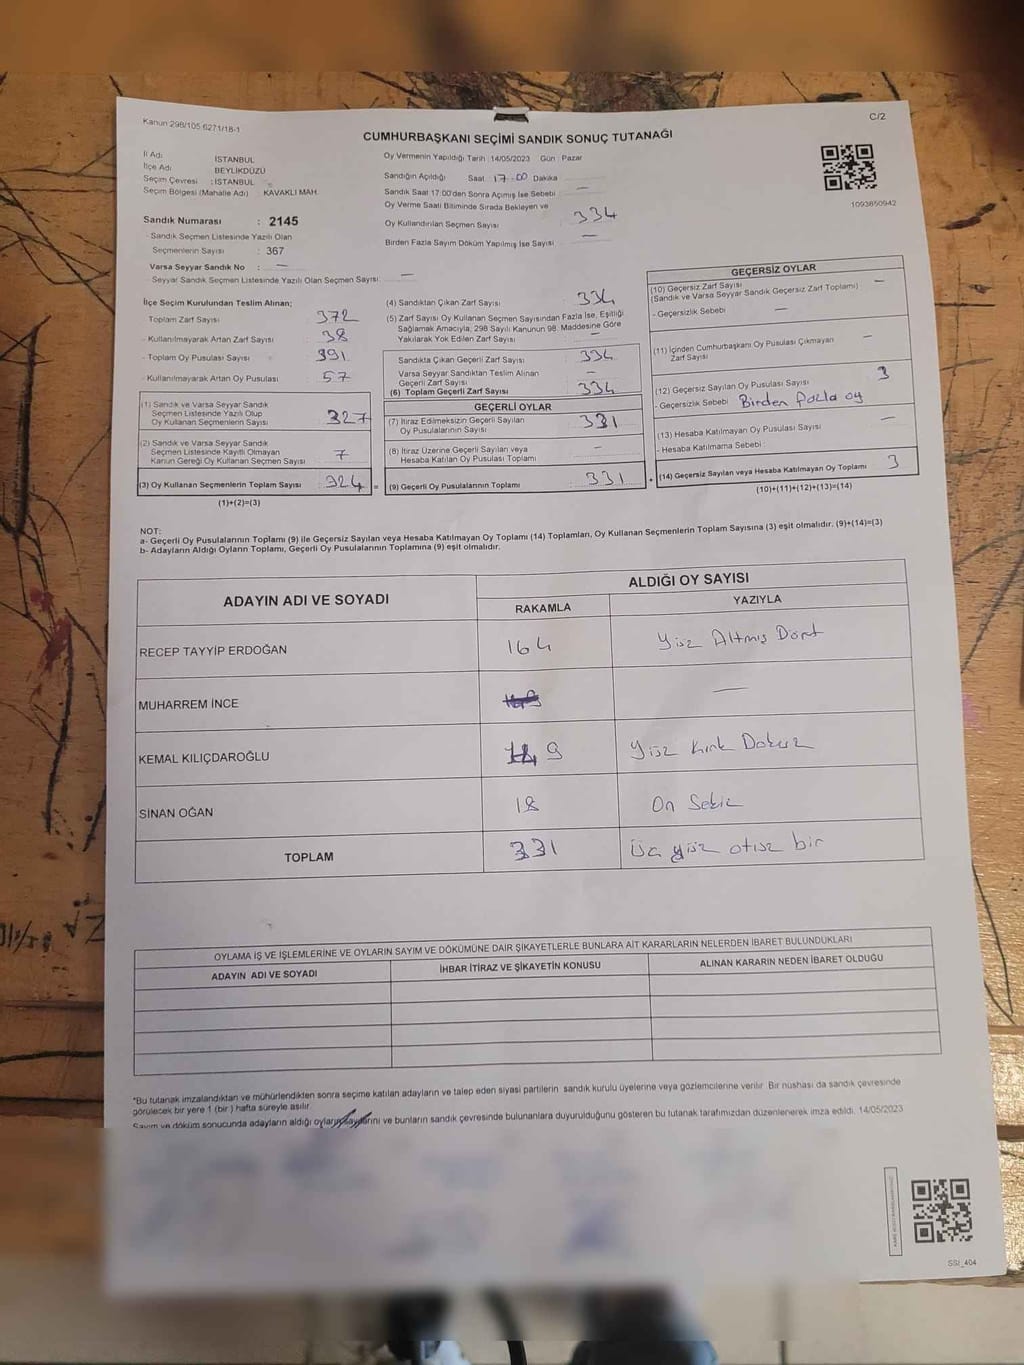 Kanun 298/105 6271/18-1
C/2
CUMHURBAŞKANI SEÇİMİ SANDIK SONUÇ TUTANAĞI
İl Adı : İSTANBUL
İlçe Adı BEYLİKDÜZÜ
Seçim Çevresi : İSTANBUL
Seçim Bölgesi (Mahalle Adı) KAVAKLI MAH.
Sandık Numarası : 2145
Sandık Seçmen Listesinde Yazılı Olan
Seçmenlerin Sayısı : 367
Varsa Seyyar Sandık No : —
Seyyar Sandık Seçmen Listesinde Yazılı Olan Seçmen Sayısı: —
Oy Vermenin Yapıldığı Tarih :14/05/2023 Gün : Pazar
Sandığın Açıldığı Saat 17.00 Dakika
Sandık Saat 17:00'den Sonra Açımış İse Sebebi —
Oy Verme Saati Bitiminde Sırada Bekleyen ve
Oy Kullandırılan Seçmen Sayısı 334
Birden Fazla Sayım Döküm Yapılmış İse Sayısı —
1093850942
İlçe Seçim Kurulundan Teslim Alınan;
Toplam Zarf Sayısı 372
Kullanılmayarak Artan Zarf Sayısı 38
Toplam Oy Pusulası Sayısı 391
Kullanılmayarak Artan Oy Pusulası 57
(1) Sandık ve Varsa Seyyar Sandık
Seçmen Listesinde Yazılı Olup
Oy Kullanan Seçmenlerin Sayısı 327
(2) Sandık ve Varsa Seyyar Sandık
Seçmen Listesinde Kayıtlı Olmayan
Kanun Gereği Oy Kullanan Seçmen Sayısı 7
(3) Oy Kullanan Seçmenlerin Toplam Sayısı 324 =
(1)+(2)=(3)
(4) Sandıktan Çıkan Zarf Sayısı 334
(5) Zarf Sayısı Oy Kullanan Seçmen Sayısından Fazla İse, Eşitliği
Sağlamak Amacıyla; 298 Sayılı Kanunun 98. Maddesine Göre
Yakılarak Yok Edilen Zarf Sayısı —
Sandıkta Çıkan Geçerli Zarf Sayısı 334
Varsa Seyyar Sandıktan Teslim Alınan
Geçerli Zarf Sayısı —
(6) Toplam Geçerli Zarf Sayısı 334
GEÇERLİ OYLAR
(7) İtiraz Edilmeksizin Geçerli Sayılan
Oy Pusulalarının Sayısı 331
(8) İtiraz Üzerine Geçerli Sayılan veya
Hesaba Katılan Oy Pusulası Toplamı —
(9) Geçerli Oy Pusulalarının Toplamı 331 +
GEÇERSİZ OYLAR
(10) Geçersiz Zarf Sayısı —
(Sandık ve Varsa Seyyar Sandık Geçersiz Zarf Toplamı)
- Geçersizlik Sebebi —
(11) İçinden Cumhurbaşkanı Oy Pusulası Çıkmayan
Zarf Sayısı —
(12) Geçersiz Sayılan Oy Pusulası Sayısı 3
- Geçersizlik Sebebi Birden fazla oy
(13) Hesaba Katılmayan Oy Pusulası Sayısı —
- Hesaba Katılmama Sebebi :
(14) Geçersiz Sayılan veya Hesaba Katılmayan Oy Toplamı 3
(10)+(11)+(12)+(13)=(14)
NOT:
a- Geçerli Oy Pusulasının Toplamı (9) ile Geçersiz Sayılan veya Hesaba Katılmayan Oy Toplamı (14) Toplamları, Oy Kullanan Seçmenlerin Toplam Sayısına (3) eşit olmalıdır. (9)+(14)=(3)
b- Adayların Aldığı Oyların Toplamı, Geçerli Oy Pusulalarının Toplamına (9) eşit olmalıdır.
ADAYIN ADI VE SOYADI
ALDIĞI OY SAYISI
RAKAMLA YAZIYLA
RECEP TAYYİP ERDOĞAN 164 Yüz Altmış Dört
MUHARREM İNCE —
KEMAL KILIÇDAROĞLU 149 Yüz Kırk Dokuz
SİNAN OĞAN 18 On Sekiz
TOPLAM 331 Üç yüz otuz bir
OYLAMA İŞ VE İŞLEMLERİNE VE OYLARIN SAYIM VE DÖKÜMÜNE DAİR ŞİKAYETLERLE BUNLARA AİT KARARLARIN NELERDEN İBARET BULUNDUKLARI
ADAYIN ADI VE SOYADI İHBAR İTİRAZ VE ŞİKAYETİN KONUSU ALINAN KARARIN NEDEN İBARET OLDUĞU
*Bu tutanak imzalandıktan ve mühürlendikten sonra seçime katılan adayların ve talep eden siyasi partilerin sandık kurulu üyelerine veya gözlemcilerine verilir. Bir nüshası da sandık çevresinde
görülecek bir yere 1 (bir ) hafta süreyle asılır.
Sayım ve döküm sonucunda adayların aldığı oyların sayılarını ve bunların sandık çevresinde bulunanlara duyurulduğunu gösteren bu tutanak tarafımızdan düzenlenerek imza edildi. 14/05/2023
SSI_404